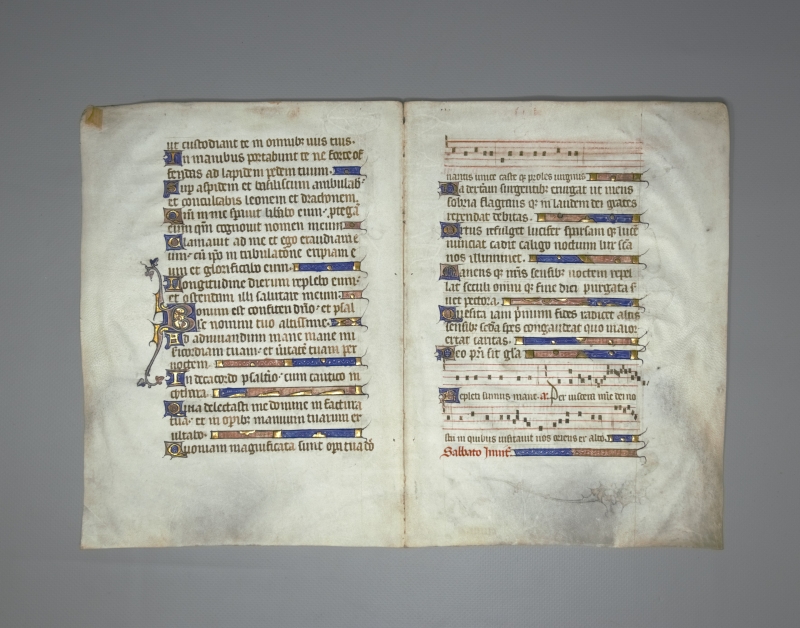 ut custodiant te in omnibꝫ uiis tuis.
In manibus portabunt te ne forte of
fendas ad lapidem pedem tuum.
Sup aspidem et basiliscum ambulab
et conculcabis leonem et draconem.
Qm̄ in me spauit libabo eum ptegā
eum qm̄ cognouit nomen meum
Clamauit ad me et ego exaudiam e
um cū ipō in tribulatione eripiam e
um et glorificabo eum.
Longitudine dierum replebo eum
et ostendam illi salutare meum.
Bonum est confiteri dn̄o et psal
lere nomini tuo altissime.
Ad adnuntiandum mane mam mi
sericordiam tuam et ūitatē tuam per
noctem.
In decacordo psaltio cum cantico in
cythara.
Quia delectasti me domine in factura
tua et in opibꝫ manuum tuarum ex
ultabo.
Quoniam magnificata sunt opa tua dō
nantis unice caste qꝫ proles uirginis
Da dexteram surgentibꝫ exurgat ut mens
sobria flagrans qꝫ in laudem dei grates
rependat debitas.
Ortus refulget lucifer spsam qꝫ luce
nunciat cadit caligo noctium lux sc̄a
nos illuminet.
Manens qꝫ nr̄is sensibꝫ noctem repel
lat seculi omni qꝫ fine diei purgata s
uet pectora.
Quesita iam p̄mum fides radicet altis
sensibꝫ secda spes congaudeat quo maior
extat caritas.
Deo pr̄i sit gl̄a
Repleti sumus mane. a. Per uiscera mīe dei no
stri in quibus uisitauit nos oriens ex alto.
Sabbato Inuit